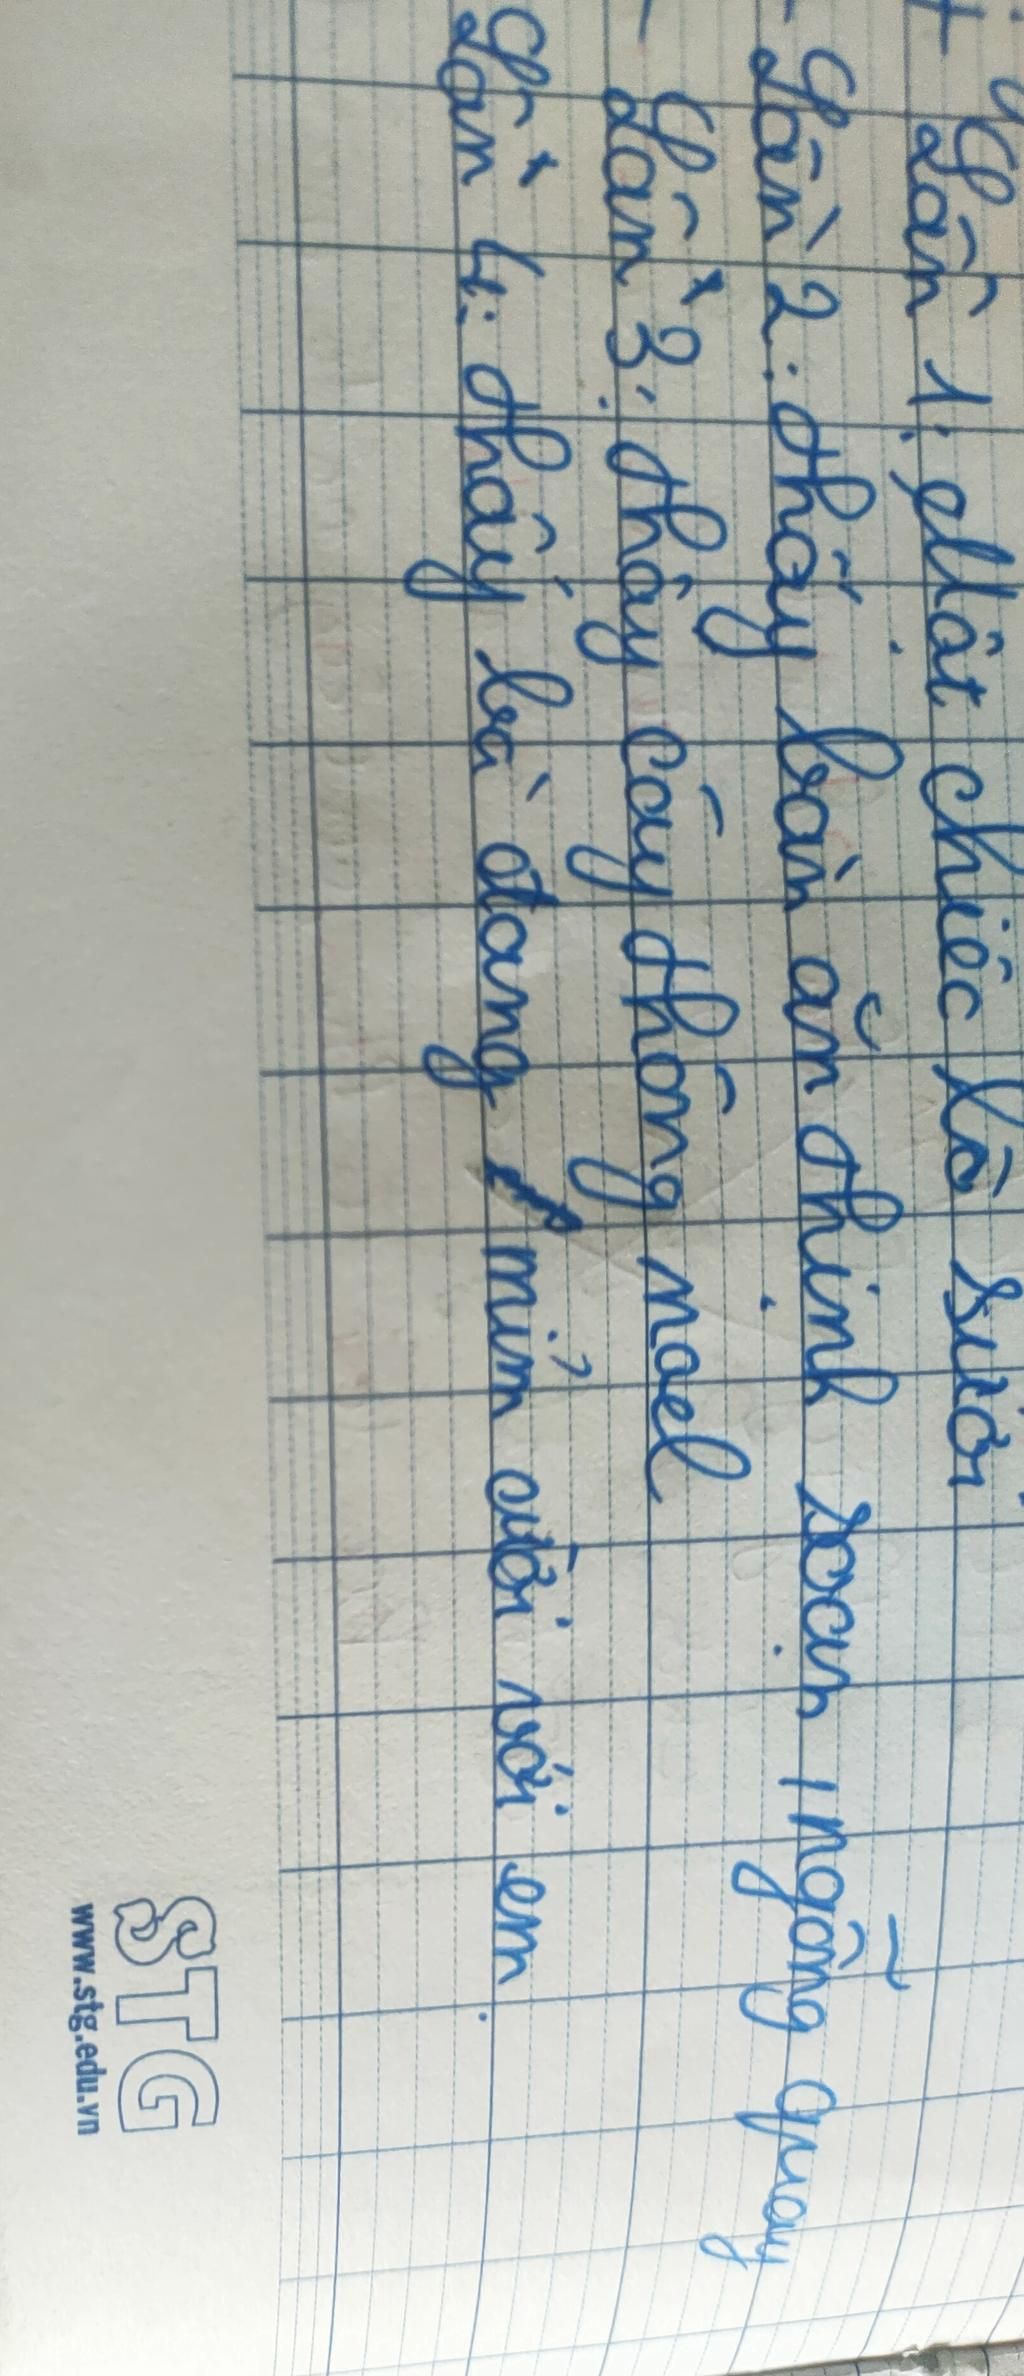 + Lần 1: Một chiếc lò sưởi
- Lần 2: thấy bàn ăn thịnh soạn, ngỗng quay
- Lần 3: thấy cây thông noel
Lần 4: thấy bà đang mỉm cười với em.
STG
www.stg.edu.vn